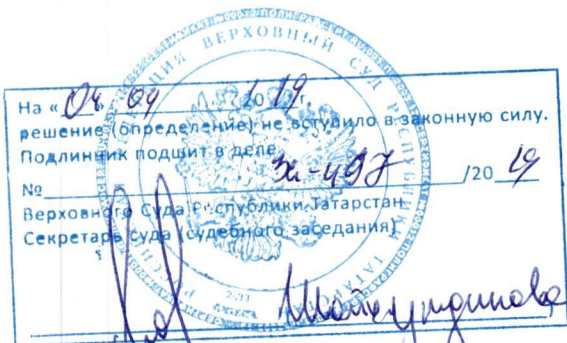 ВЕРХОВНЫЙ СУД РЕСПУБЛИКИ ТАТАРСТАН
На «04» 04 2019 г.
решение (определение) не вступило в законную силу.
Подлинник подшит в деле
№ 3а-497 /2019
Верховного Суда Республики Татарстан
Секретарь суда (судебного заседания)